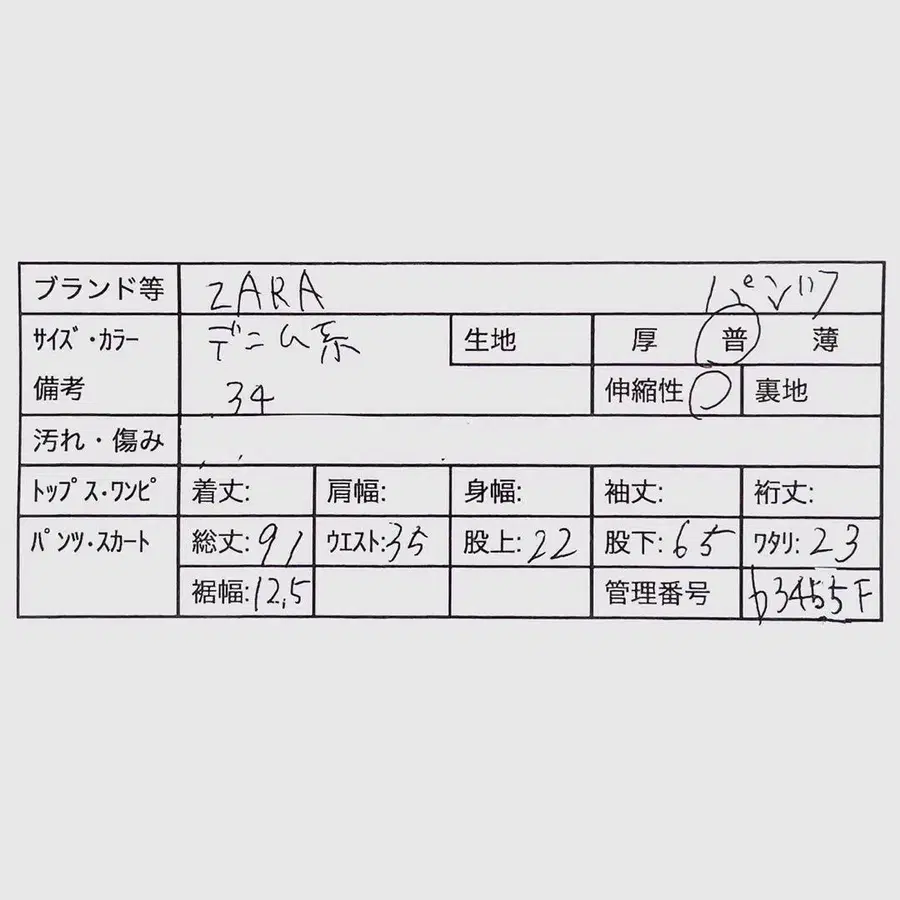 ブランド等 ZARA パンツ
サイズ・カラー デニム系 生地 厚 普 薄
備考 34 伸縮性 ○ 裏地
汚れ・傷み
トップス・ワンピ 着丈: 肩幅: 身幅: 袖丈: 裄丈:
パンツ・スカート 総丈:91 ウエスト:35 股上:22 股下:65 ワタリ:23
裾幅:12.5 管理番号